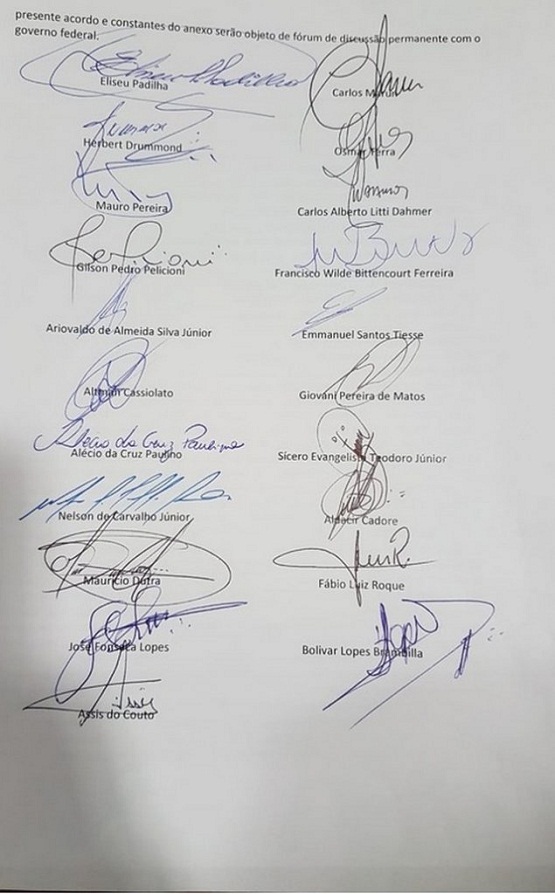 presente acordo e constantes do anexo serão objeto de fórum de discussão permanente com o
governo federal.
Eliseu Padilha
Carlos Marun
Herbert Drummond
Osmar Terra
Mauro Pereira
Carlos Alberto Litti Dahmer
Gilson Pedro Pelicioni
Francisco Wilde Bittencourt Ferreira
Ariovaldo de Almeida Silva Júnior
Emmanuel Santos Tiesse
Cassiolato
Giovani Pereira de Matos
Alécio da Cruz Paulino
Alécio da Cruz Paulino
Sícero Evangelista Teodoro Júnior
Nelson de Carvalho Júnior
Aldacir Cadore
Maurício Dutra
Fábio Luiz Roque
José Fonseca Lopes
Bolivar Lopes Brambilla
Assis do Couto